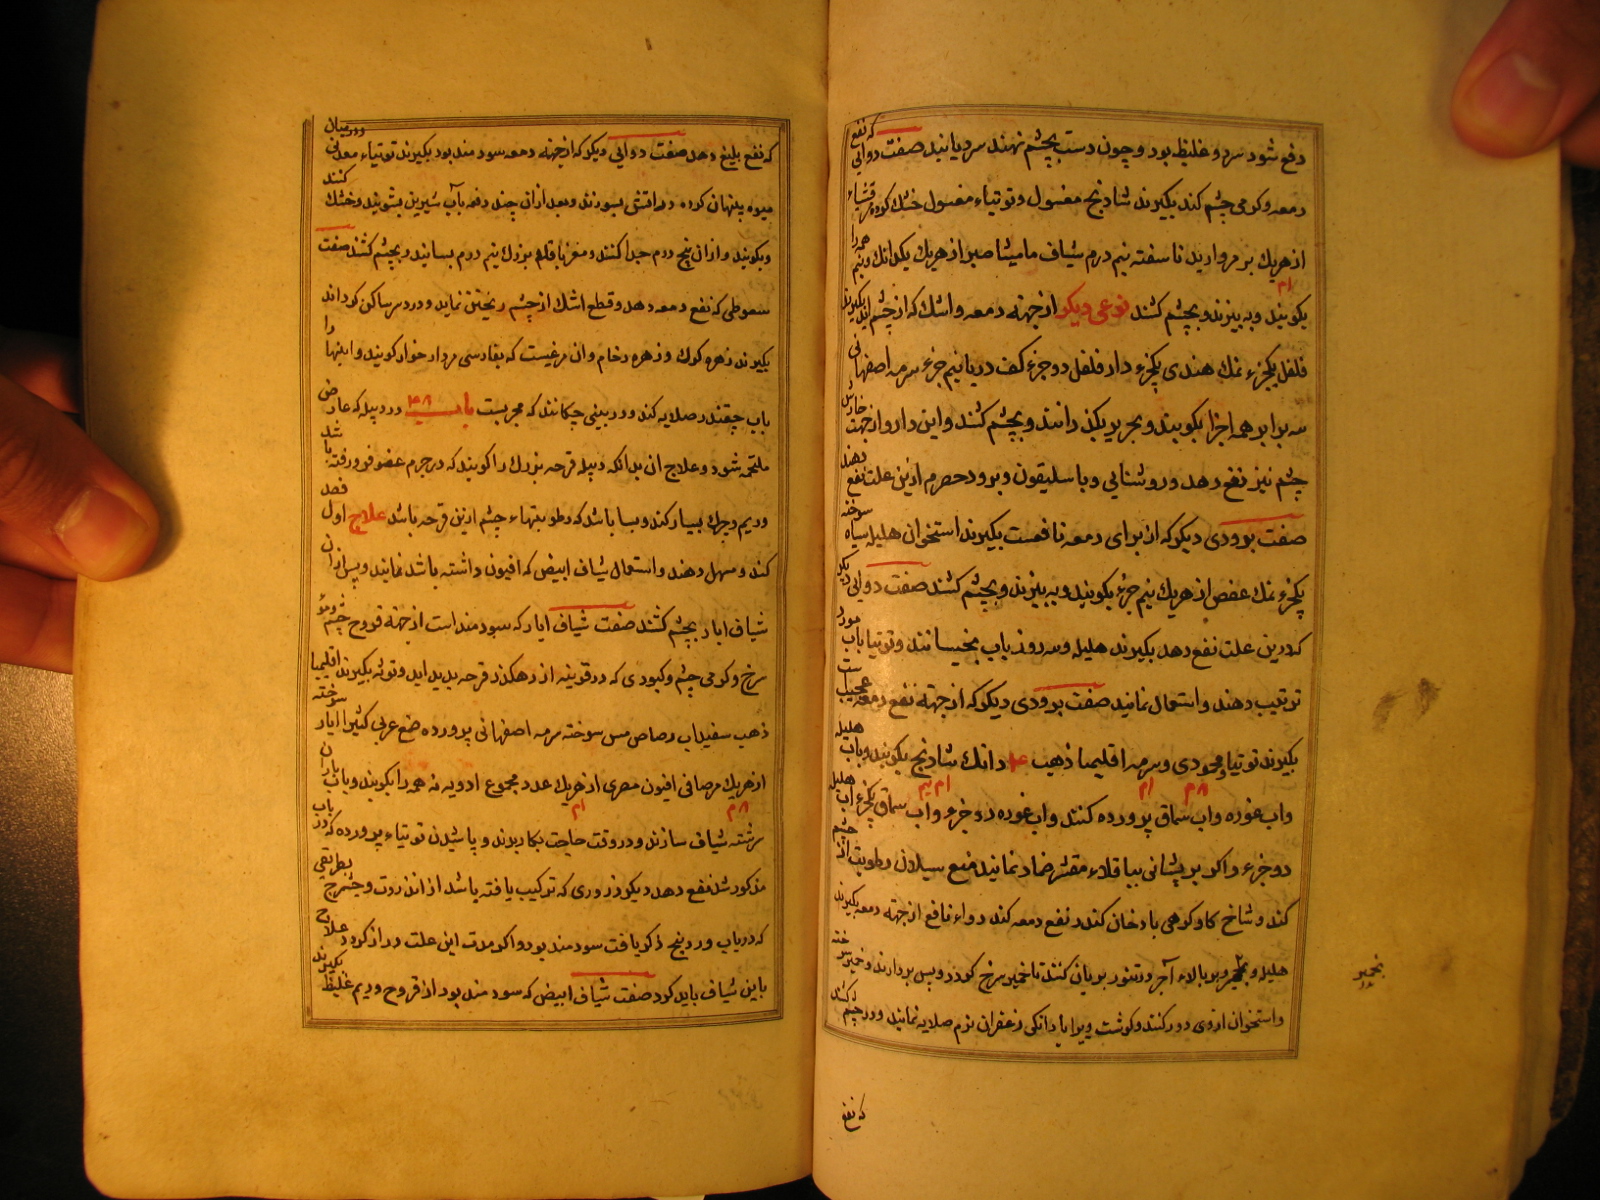 دفع شود سرد و غلیظ بود و چون دست بچشم نهند سرد یابند صفت دوایی که نفع
دمعه و کرمی چشم کند بکیرند شادنج مغسول و توتیاء مغسول خشك کوده مرقشیاء
از هریك بر مروارید نا سفته نیم درم شیاف مامیثا صبر از هریك یكدانك و نیم همه را
بکوبند و به بیزند و بچشم کشند نوعی دیکر از جهته دمعه و اشك که از چشم آید بکیرند
فلفل یكجزء نمك هندی یكجزء دار فلفل دو جزء كف دریا نیم جزء سرمه اصفهانی
سه برابر همه اجزا بکوبند و بحریر بکذرانند و بچشم کشند و این دارو از جهت خارش
چشم نیز نفع دهد و روشنایی و باسلیقون و برود حصرم ازین علت نفع دهند
صفت برودی دیکر که از برای دمعه نافعست بکیرند استخوان هلیله سیاه سوخته
یكجزء نمك عفص از هریك نیم جزء بکوبند و به بیزند و بچشم کشند صفت دوایی دیکر
که درین علت نفع دهد بکیرند هلیله و سه روز باب بخیسانند و توتیا باب مورد
ترتیب دهند و استعمال نمایند صفت برودی دیکر که از جهته نفع دمعه عجیب است
بکیرند توتیاء محمودی و سرمه اقلیمیا ذهب دانك شادنج بکوبند و باب هلیله
واب غوره واب سماق پرورده کنند واب غوره دو جزء و اب سماق یكجزء اب هلیله
دو جزء و اکر بر پیشانی بباقلاء مقشر ضماد نمایند منع سیلان رطوبت از چشم
کند و شاخ کاو کوهی با دخان کندر نفع دمعه کند دواء نافع از جهته دمعه بکیرند
هلیله و بخمیر و بر بالاء آجر در تنور بریان کنند تا خمیر سرخ کردد و پس بردارند و خمیر سوخته
و استخوان ازوی دور کنند و کوشت ویرا با دانکی زعفران نرم صلایه نمایند و در چشم کشند
بخمیر
که نفع
که نفع بلیغ دهد صفت دوایی دیکر که از جهته دمعه سودمند بود بکیرند توتیاء معدنی و در میان
میوه پنهان کرده در اتش بسوزند و بعد ازان چند دفعه بآب شیرین بشویند و خشك کنند
و بکوبند و ازان پنج درم جدا کنند و مغز باقلاء بزرك نیم درم بسایند و بچشم کشند صفت
سعوطی که نفع دمعه دهد و قطع اشك از چشم ریختن نماید و درد سر ساکن کرداند
بکیرند زهره کرك و زهره رخام و ان مرغیست که بفارسی مردار خوار کویند و اینها را
باب چقندر صلایه کند و در بینی چکانند که مجربست باب ۳۸ در دبیله که عارض
ملتحمه شود و علاج ان بدانکه دبیله قرحه بزرك را کویند که در جرم عضو فرو رفته باشد
و ریم و چرك بسیار کند و بسا باشد که رطوبتهاء چشم ازین قرحه باشد علاج اول فصد
کند و مسهل دهند و استعمال شیاف ابیض که افیون داشته باشد نمایند و پس ازان
شیاف ابار بچشم کشند صفت شیاف ابار که سودمند است از جهة قروح چشم و مو
سرخ و کرمی چشم و کبودی که در قرنیه از رهکذر قرحه بدید اید و توثه بکیرند اقلیمیا
ذهب سفیداب رصاص مس سوخته سرمه اصفهانی پرورده ضغ عربی کثیرا ابار سوخته
از هریك مر صافی افیون مصری از هریك عدد مجموع ادویه نه همه را بکوبند و باب باران
سرشته شیاف سازند و در وقت حاجت بکار برند و پاشیدن توتیاء پرورده که در باب
مذکور شد نفع دهد دیکر زروری که ترکیب یافته باشد از انزروت و جشمیزج بطریقی
که در باب وردینج ذکر یافت سودمند بود و اکر مدت این علت دراز کردد علاج
باین شیاف باید کرد صفت شیاف ابیض که سودمند بود از قروح و ریم غلیظ بکیرند